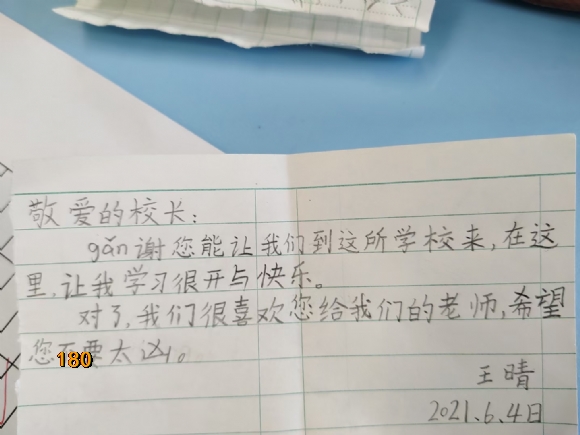 敬爱的校长:
gǎn谢您能让我们到这所学校来,在这
里,让我学习很开与快乐。
对了,我们很喜欢您给我们的老师,希望
您不要太凶。
180
王晴
2021.6.4日